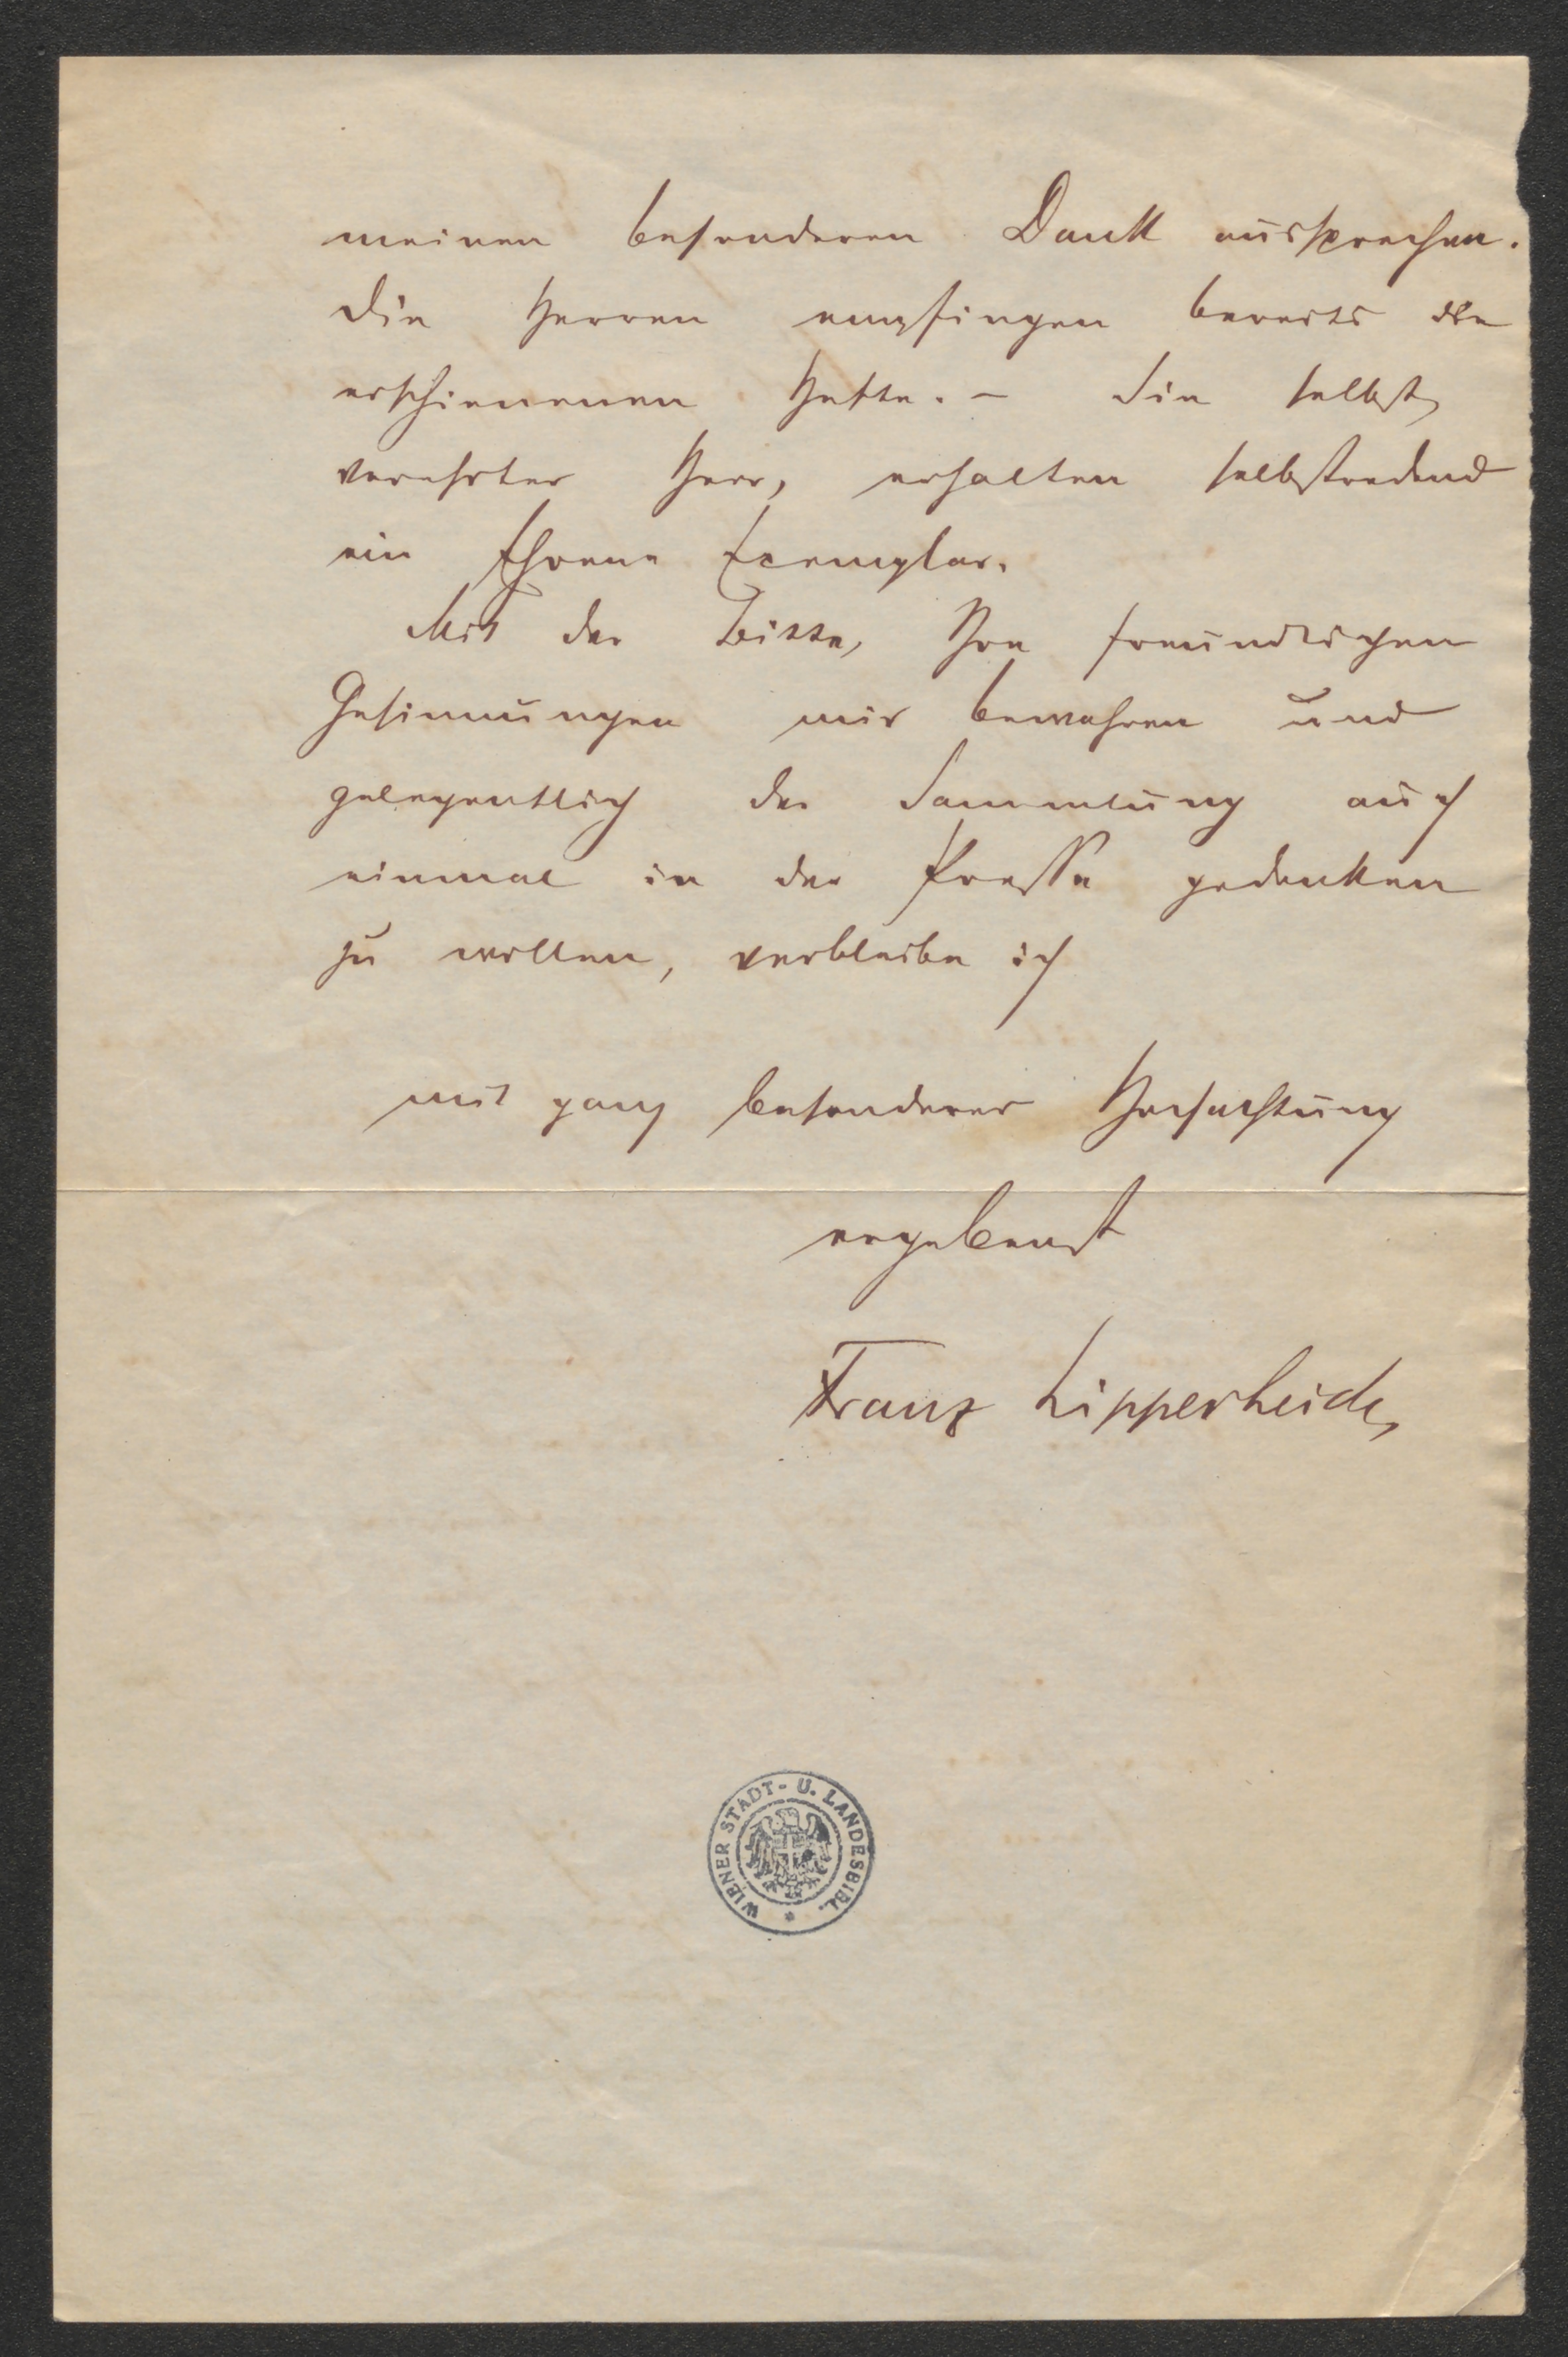 meinen besonderen Dank aussprechen.
Die Herren empfingen bereits die
erschienenen Hefte. – Sie selbst,
verehrter Herr, erhalten selbstredend
ein Ehren-Exemplar.
Mit der Bitte, Ihre freundlichen
Gesinnungen mir bewahren und
gelegentlich der Sammlung auch
einmal in der Presse gedenken
zu wollen, verbleibe ich
mit ganz besonderer Hochachtung
ergebenst
Franz Lipperheide,
WIENER STADT- U. LANDESBIBL.